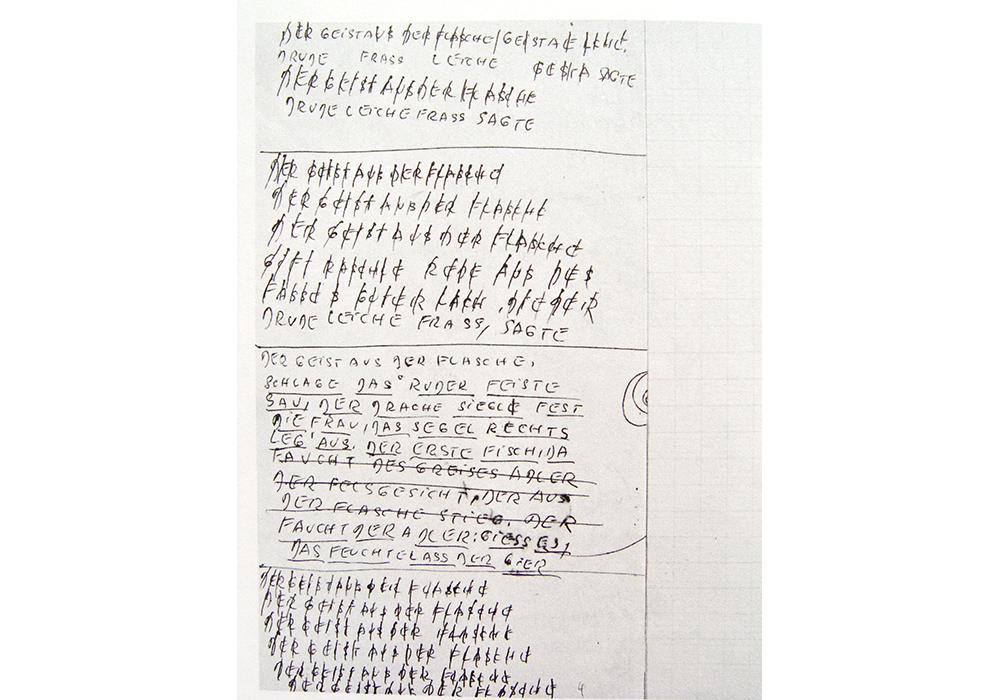 DER GEIST AUS DER FLASCHE/GEISTA
DRUDE FRASS LEICHE GEISTA SAGTE
DER GEIST AUS DER FLASCHE
DRUDE LEICHE FRASS SAGTE
DER GEIST AUS DER FLASCHE
DER GEIST AUS DER FLASCHE
DER GEIST AUS DER FLASCHE
GIFT RASCHLE REDE AUS DES
FASSES GITTER LACH
DRUDE LEICHE FRASS, SAGTE
DER GEIST AUS DER FLASCHE,
SCHLAGE DAS RUDER FEISTE
SAU, DER DRACHE SIEGLE FEST
DIE FRAU, DAS SEGEL RECHTS
LEG' AUS. DER ERSTE FISCH, DA
FAUCHT DES GREISES ADLER
DER FELSGESICHT, DER AUS
DER FLASCHE STIEG. DER
FAUCHT DER ADLER: GIESS ES,
DAS FEUCHTE LASS DER GIER
DER GEIST AUS DER FLASCHE
DER GEIST AUS DER FLASCHE
DER GEIST AUS DER FLASCHE
DER GEIST AUS DER FLASCHE
DER GEIST AUS DER FLASCHE
DER GEIST AUS DER FLASCHE 4